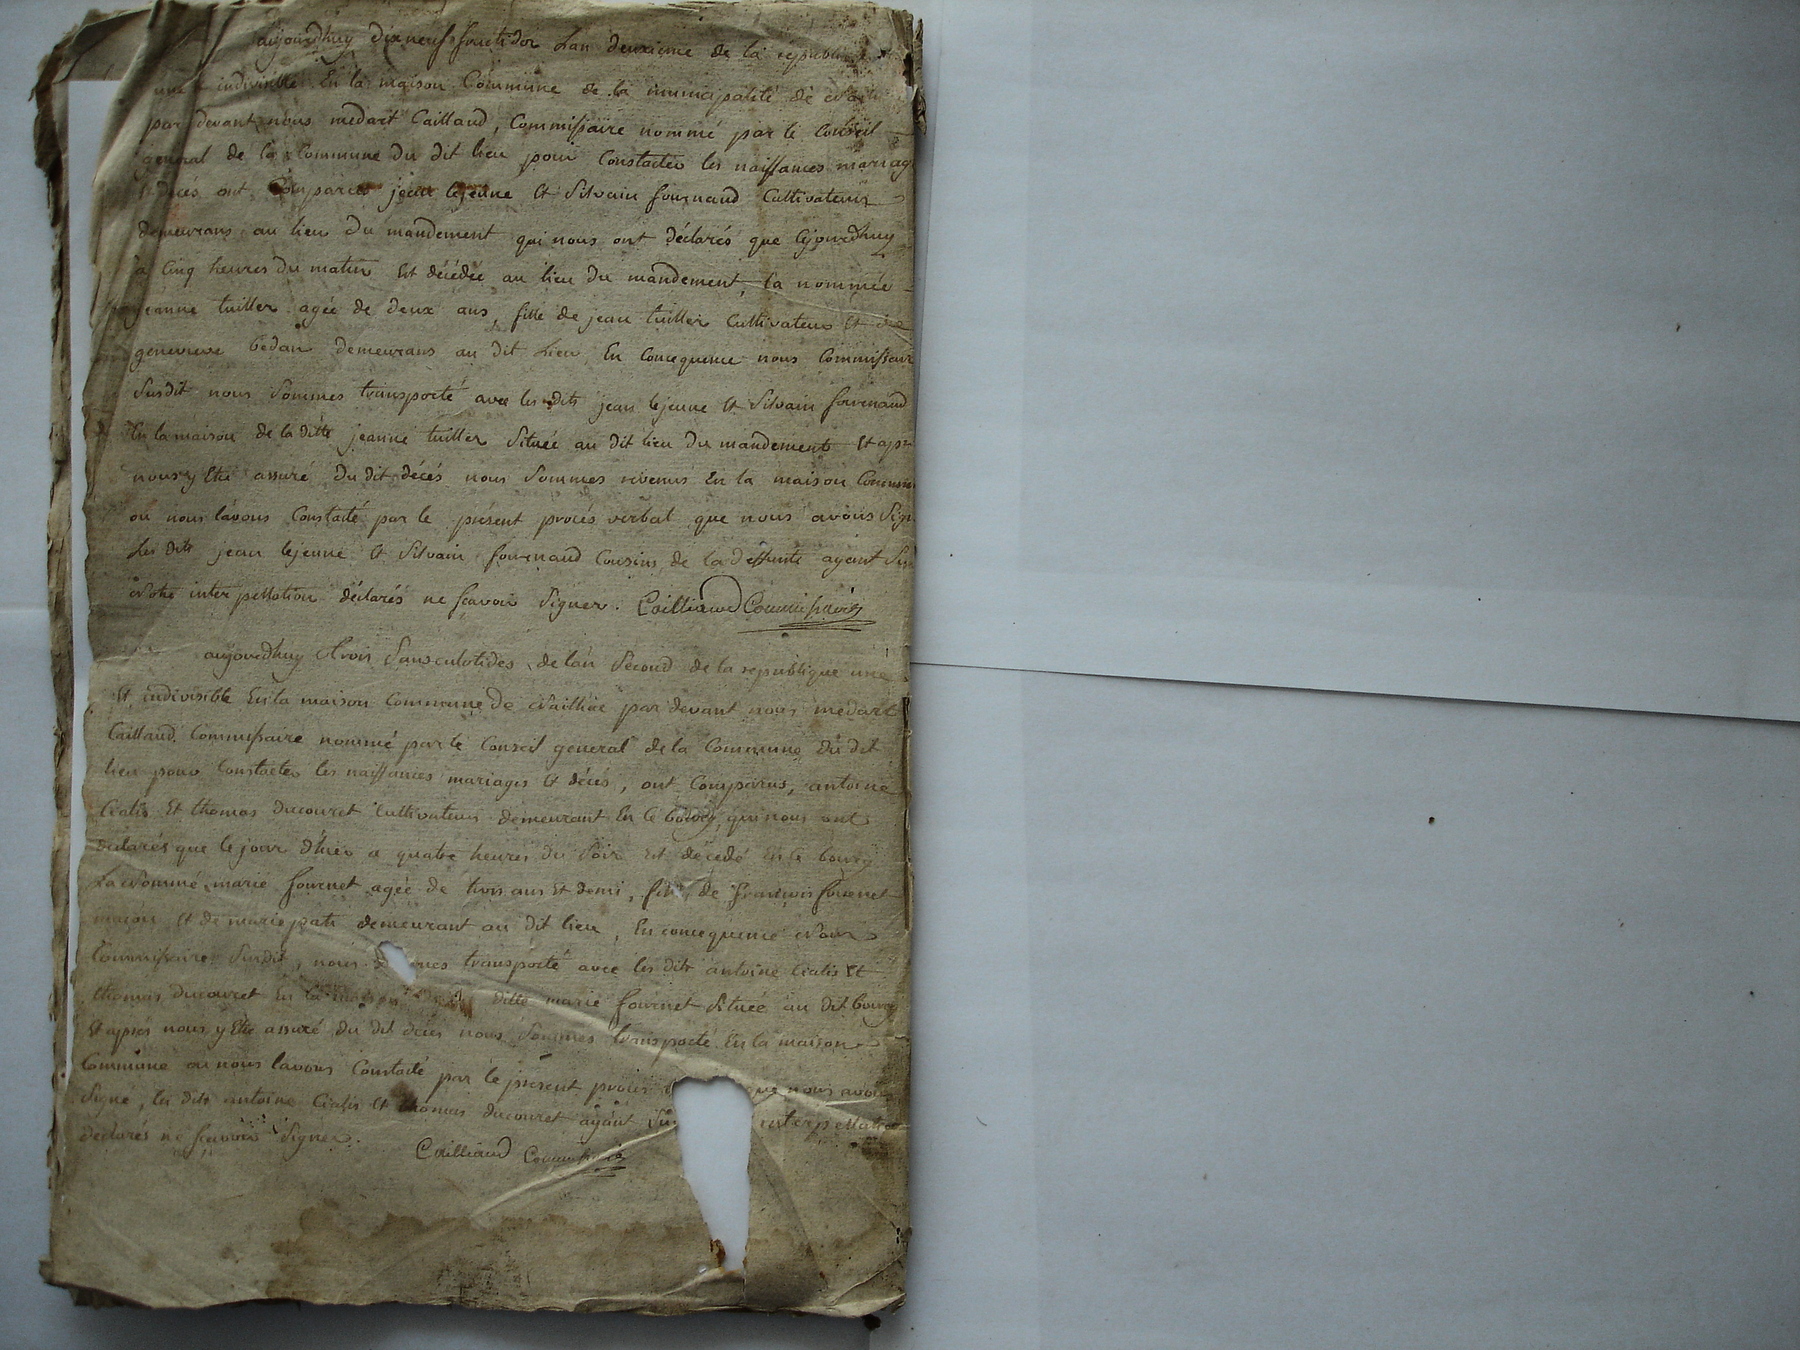 aujourdhuy dix neuf fructidor Lan deuxieme de la republi
une & indivisible En la maison Commune de la municipalité de
par devant nous medart Caillaud, Commissaire nommé par le Conseil
general de la Commune du dit lieu pour Constater les naissances mariag
& décés ont Comparus jean lejeune Et Silvain fournaud Cultivateurs
demeurans au lieu du mandement qui nous ont déclarés que cejourdhuy
a Cinq heures du matin Est décédée au lieu du mandement, la nommée
jeanne tuiller agée de deux ans, fille de jean tuiller Cultivateur Et de
genevieve bedan demeurans au dit Lieu, En Concequence nous Commissair
Susdit nous Sommes transporté avec les dits jean lejeune Et Silvain fournaud
En la maison de la ditte jeanne tuiller Située au dit lieu du mandement Et apr
nous y Etre assuré du dit décés nous Sommes revenus En la maison Commun
ou nous lavons Constaté par le présent procés verbal que nous avons Sign
Les dits jean lejeune Et Silvain fournaud Cousins de la deffunte ayant Sur
Notre interpellation déclarés ne scavoir Signer. Cailliaud Commissaire
aujourdhuy trois Sansculotides de lan Second de la republique une
Et indivisible En la maison Commune de Nailhac par devant nous medart
Caillaud Commissaire nommé par le Conseil general de la Commune du dit
lieu pour Constater les naissances mariages Et décés, ont Comparus, antoine
Cialis Et thomas ducouret Cultivateurs demeurant En ce bourg, qui nous ont
déclarés que le jour d'hier a quatre heures du Soir Est décedé En ce bourg
La Nommé marie fournet agée de trois ans Et demi, fille de françois fournet
maçon Et de marie demeurant au dit lieu, En concequence Nous
Commissaire Susdit, nous transporté avec les dits antoine Cialis Et
thomas ducouret En la maison ditte marie fournet Située au dit bourg
Et aprés nous y Etre assuré du dit décés nous Sommes transporté En la maison
Commune ou nous lavons Constaté par le présent procés que nous avons
Signé, les dits antoine Cialis Et thomas ducouret ayant interpellation
déclarés ne scavoir Signer. Cailliaud Commissaire